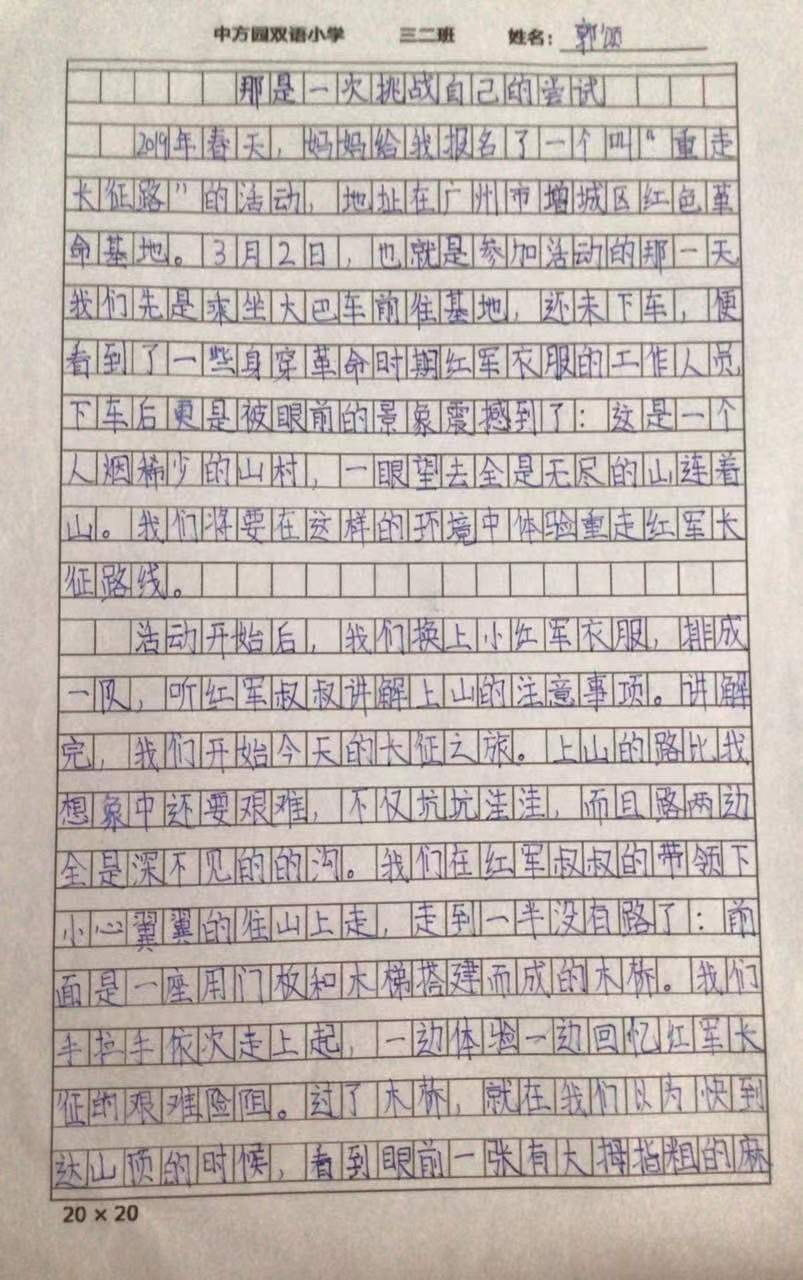 中方园双语小学 三二班 姓名：郭颂
那是一次挑战自己的尝试
2019年春天，妈妈给我报名了一个叫“重走
长征路”的活动，地址在广州市增城区红色革
命基地。3月2日，也就是参加活动的那一天
我们先是乘坐大巴车前往基地，还未下车，便
看到了一些身穿革命时期红军衣服的工作人员
下车后更是被眼前的景象震撼到了：这是一个
人烟稀少的山村，一眼望去全是无尽的山连着
山。我们将要在这样的环境中体验重走红军长
征路线。
活动开始后，我们换上小红军衣服，排成
一队，听红军叔叔讲解上山的注意事项。讲解
完，我们开始今天的长征之旅。上山的路比我
想象中还要艰难，不仅坑坑洼洼，而且路两边
全是深不见的的沟。我们在红军叔叔的带领下
小心翼翼的往山上走，走到一半没有路了：前
面是一座用门板和木梯搭建而成的木桥。我们
手拉手依次走上起，一边体验一边回忆红军长
征的艰难险阻。过了木桥，就在我们以为快到
达山顶的时候，看到眼前一张有大拇指粗的麻
20 × 20